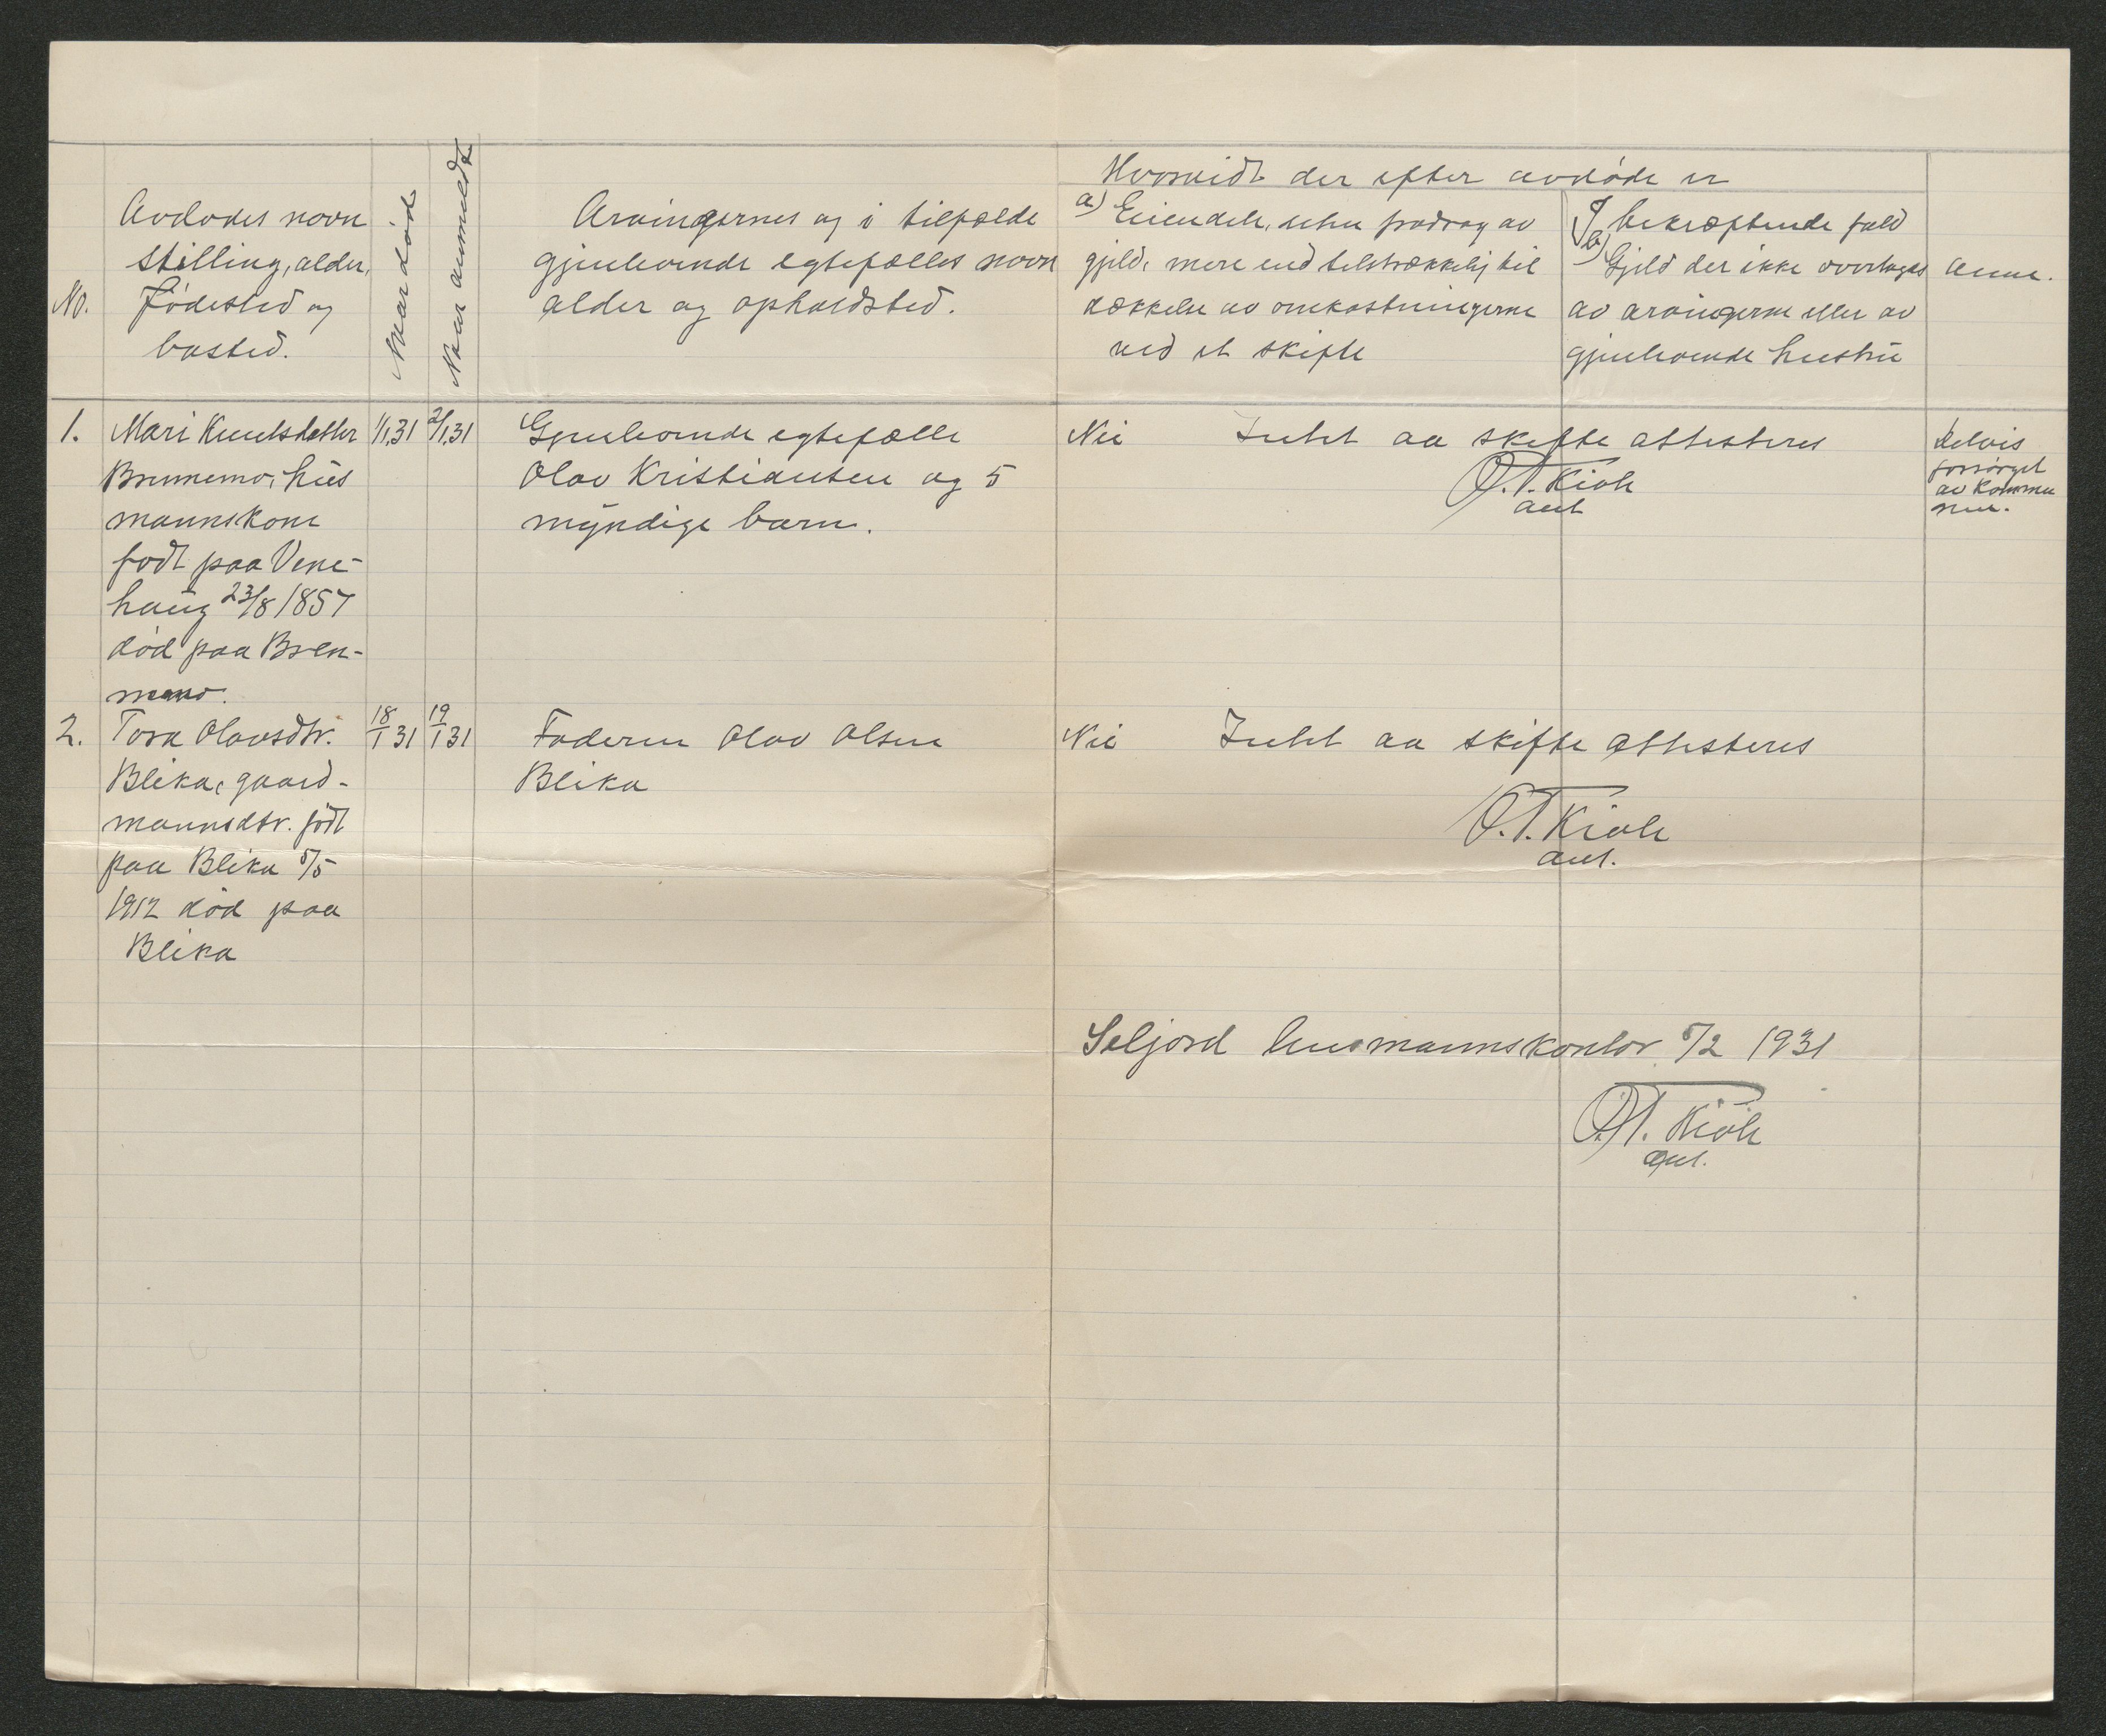 Hvorvidt der efter avdøde er
No.
Avdødes navn
stilling, alder,
fødested og
bosted.
Naar død
Naar anmeldt
Arvingernes og i tilfælde
gjenlevende egtefælles navn
alder og opholdsted.
a) Eiendele, uten fradrag av
gjeld, mere end tilstrækkelig til
dækkelse av omkostningerne
ved et skifte
I bekræftende fald
b) Gjeld der ikke overtages
av arvingerne eller av
gjenlevende hustru
Anm.
1. Mari Knutsdatter 1/1,31 2/1,31 Gjenlevende egtefælle Nei Intet aa skifte attesteres
Brennemo, hus
mannskone
født paa Vene-
haug 23/8 1857
død paa Bren-
nemo.
Olav Kristiansen og 5
myndige barn.
O.T. Kivle
Delvis
forsørget
av kommu
nen.
2. Tora Olavsdtr. 18/1 31 19/1 31 Faderen Olav Olsen Nei Intet aa skifte attesteres
Blika, gaard-
mannsdtr. født
paa Blika 5/5
1912 død paa
Blika
Blika
O.T. Kivle
Seljord lensmannskontor 5/2 1931
O.T. Kivle